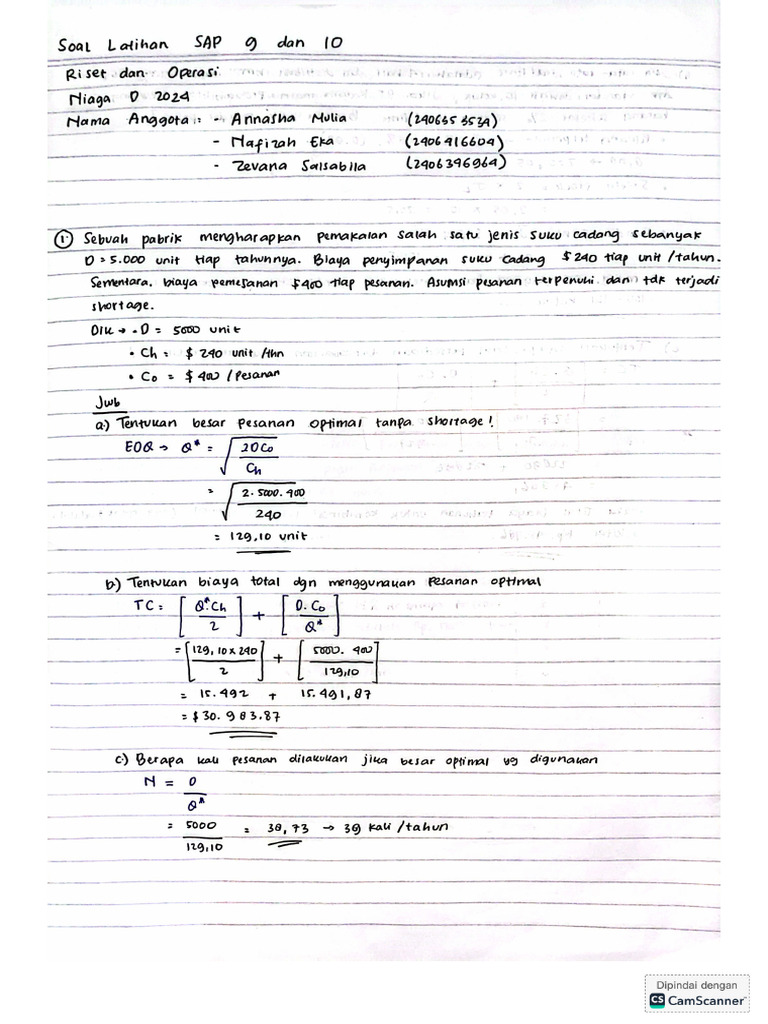 Soal Latihan SAP 9 dan 10
Riset dan Operasi
Niaga D 2024
Nama Anggota : - Annasha Mulia (2406353524)
- Nafizah Eka (2406416604)
- Zevana Salsabila (2406396964)
1. Sebuah pabrik mengharapkan pemakaian salah satu jenis suku cadang sebanyak
D = 5.000 unit tiap tahunnya. Biaya penyimpanan suku cadang $240 tiap unit/tahun.
Sementara, biaya pemesanan $400 tiap pesanan. Asumsi pesanan terpenuhi dan tdk terjadi
shortage.
Dik → • D = 5000 unit
• Ch = $ 240 unit/thn
• Co = $ 400/pesanan
Jwb
a.) Tentukan besar pesanan optimal tanpa shortage!
EOQ → Q* = √(2DCo / Ch)
= √(2. 5000. 400 / 240)
= 129,10 unit
b.) Tentukan biaya total dgn menggunakan pesanan optimal
TC = [Q*.Ch / 2] + [D. Co / Q*]
= [129,10 x 240 / 2] + [5000. 400 / 129,10]
= 15.492 + 15.491,87
= $30.983.87
c.) Berapa kali pesanan dilakukan jika besar optimal yg digunakan
N = D / Q*
= 5000 / 129,10 = 38,73 → 39 kali/tahun
Dipindai dengan
CS CamScanner